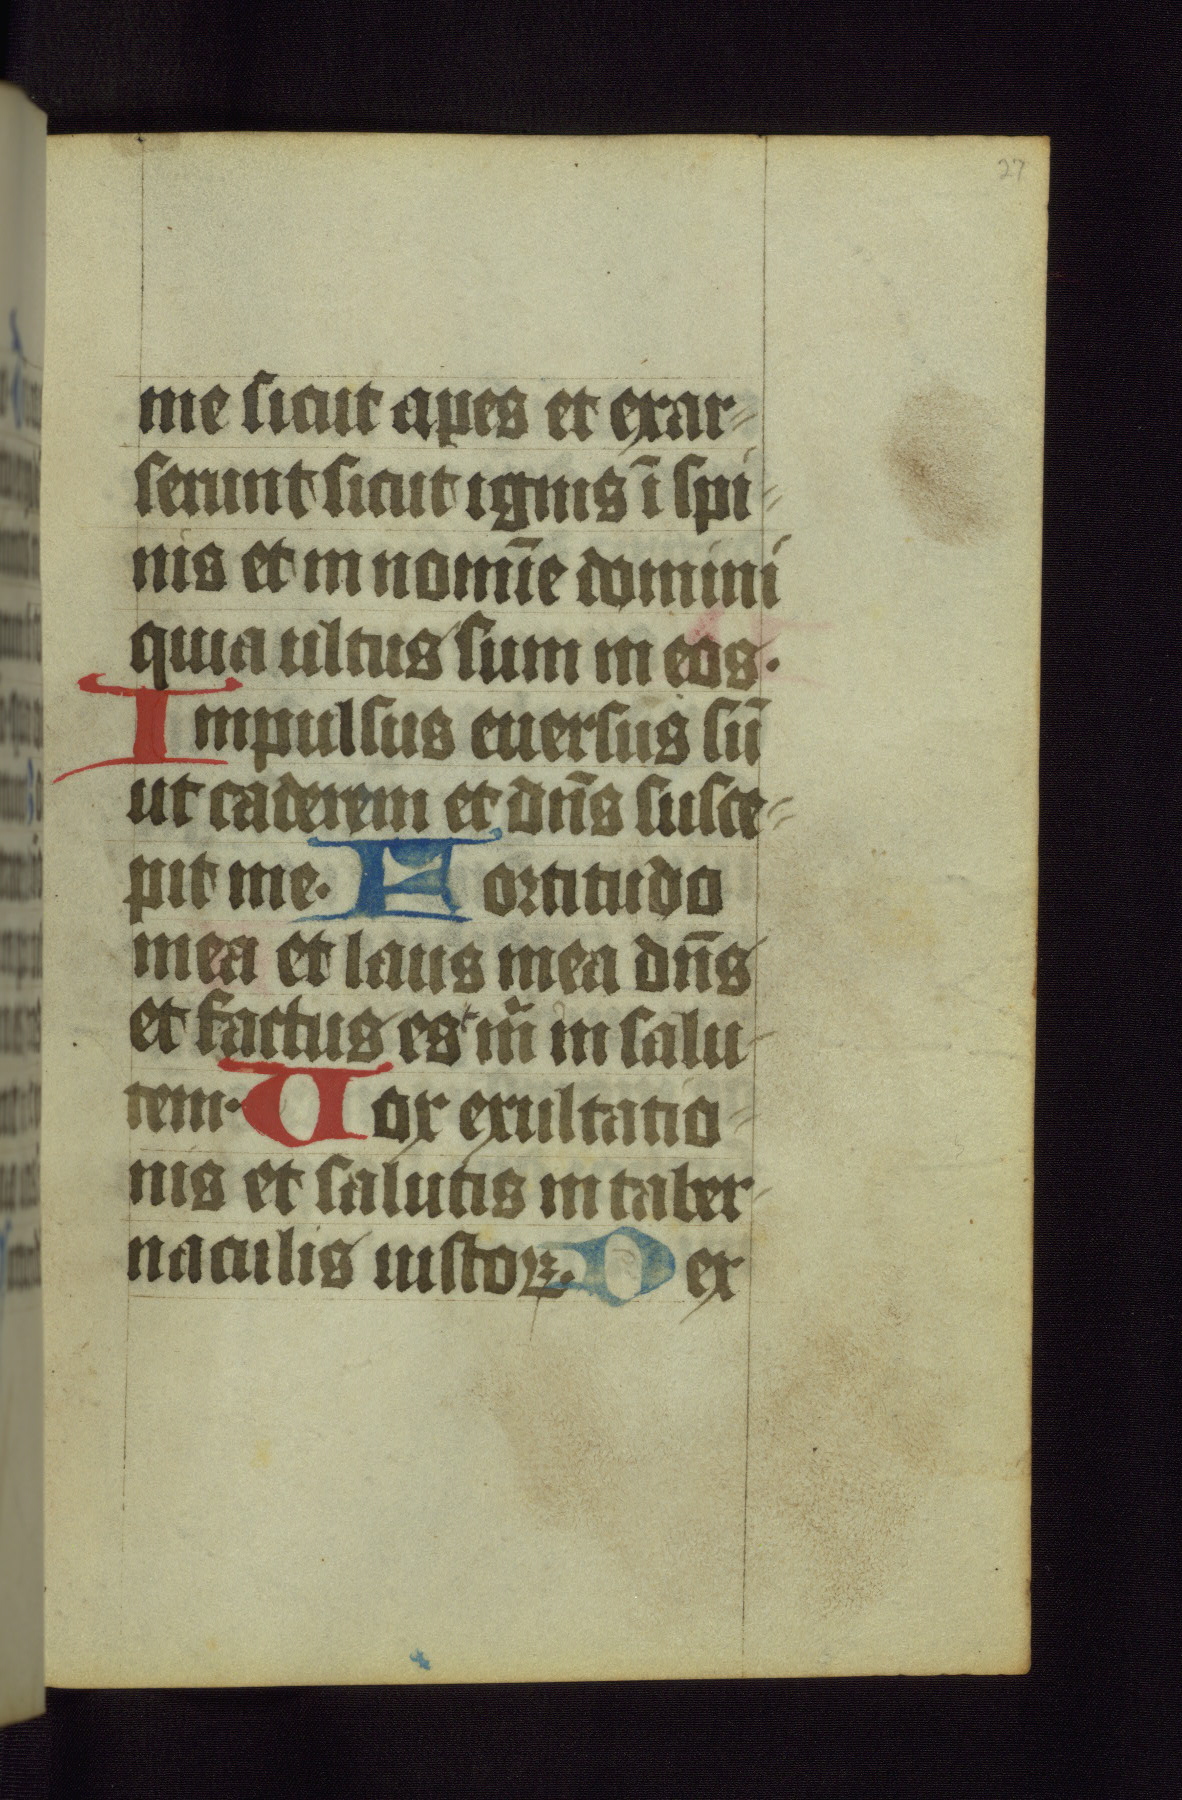 27
me sicut apes et exar-
serunt sicut ignis ī spi-
nis et in nomīe domini
quia ultus sum in eos.
Impulsus euersus sū
ut caderem et dn̄s susce-
pit me. Fortitudo
mea et laus mea dn̄s
et factus est m̄ in salu-
tem. Uox exultatio-
nis et salutis in taber-
naculis iustoꝝ. Dex